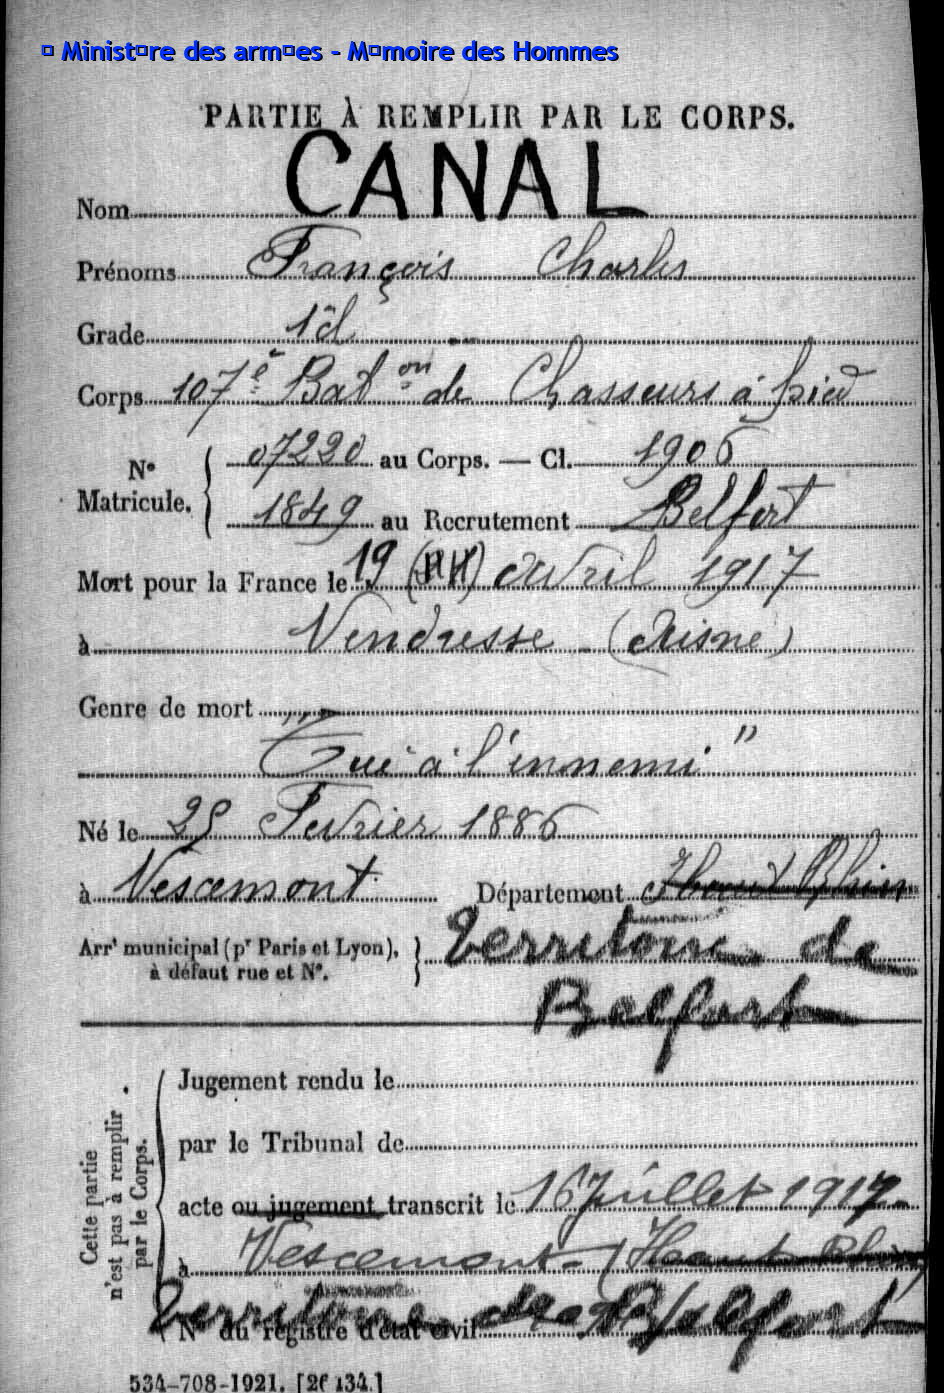 � Minist�re des arm�es - M�moire des Hommes
PARTIE À REMPLIR PAR LE CORPS.
Nom CANAL
Prénoms François Charles
Grade 1 cl
Corps 107e Baton de Chasseurs à pied
No Matricule. 07220 au Corps. — Cl. 1906
1849 au Recrutement Belfort
Mort pour la France le 19 avril 1917
à Vendresse - (Aisne)
Genre de mort
"Tué à l'ennemi"
Né le Février 1886
à Vescemont Département Haut Rhin
Arrt municipal (pr Paris et Lyon), Territoire de
à défaut rue et No. Belfort
Cette partie n'est pas à remplir par le Corps.
Jugement rendu le
par le Tribunal de
acte ou jugement transcrit le 16 Juillet 1917
à Vescemont - (Haut Rhin)
Territoire de Belfort
No du registre d'état civil
534-708-1921. [26134.]